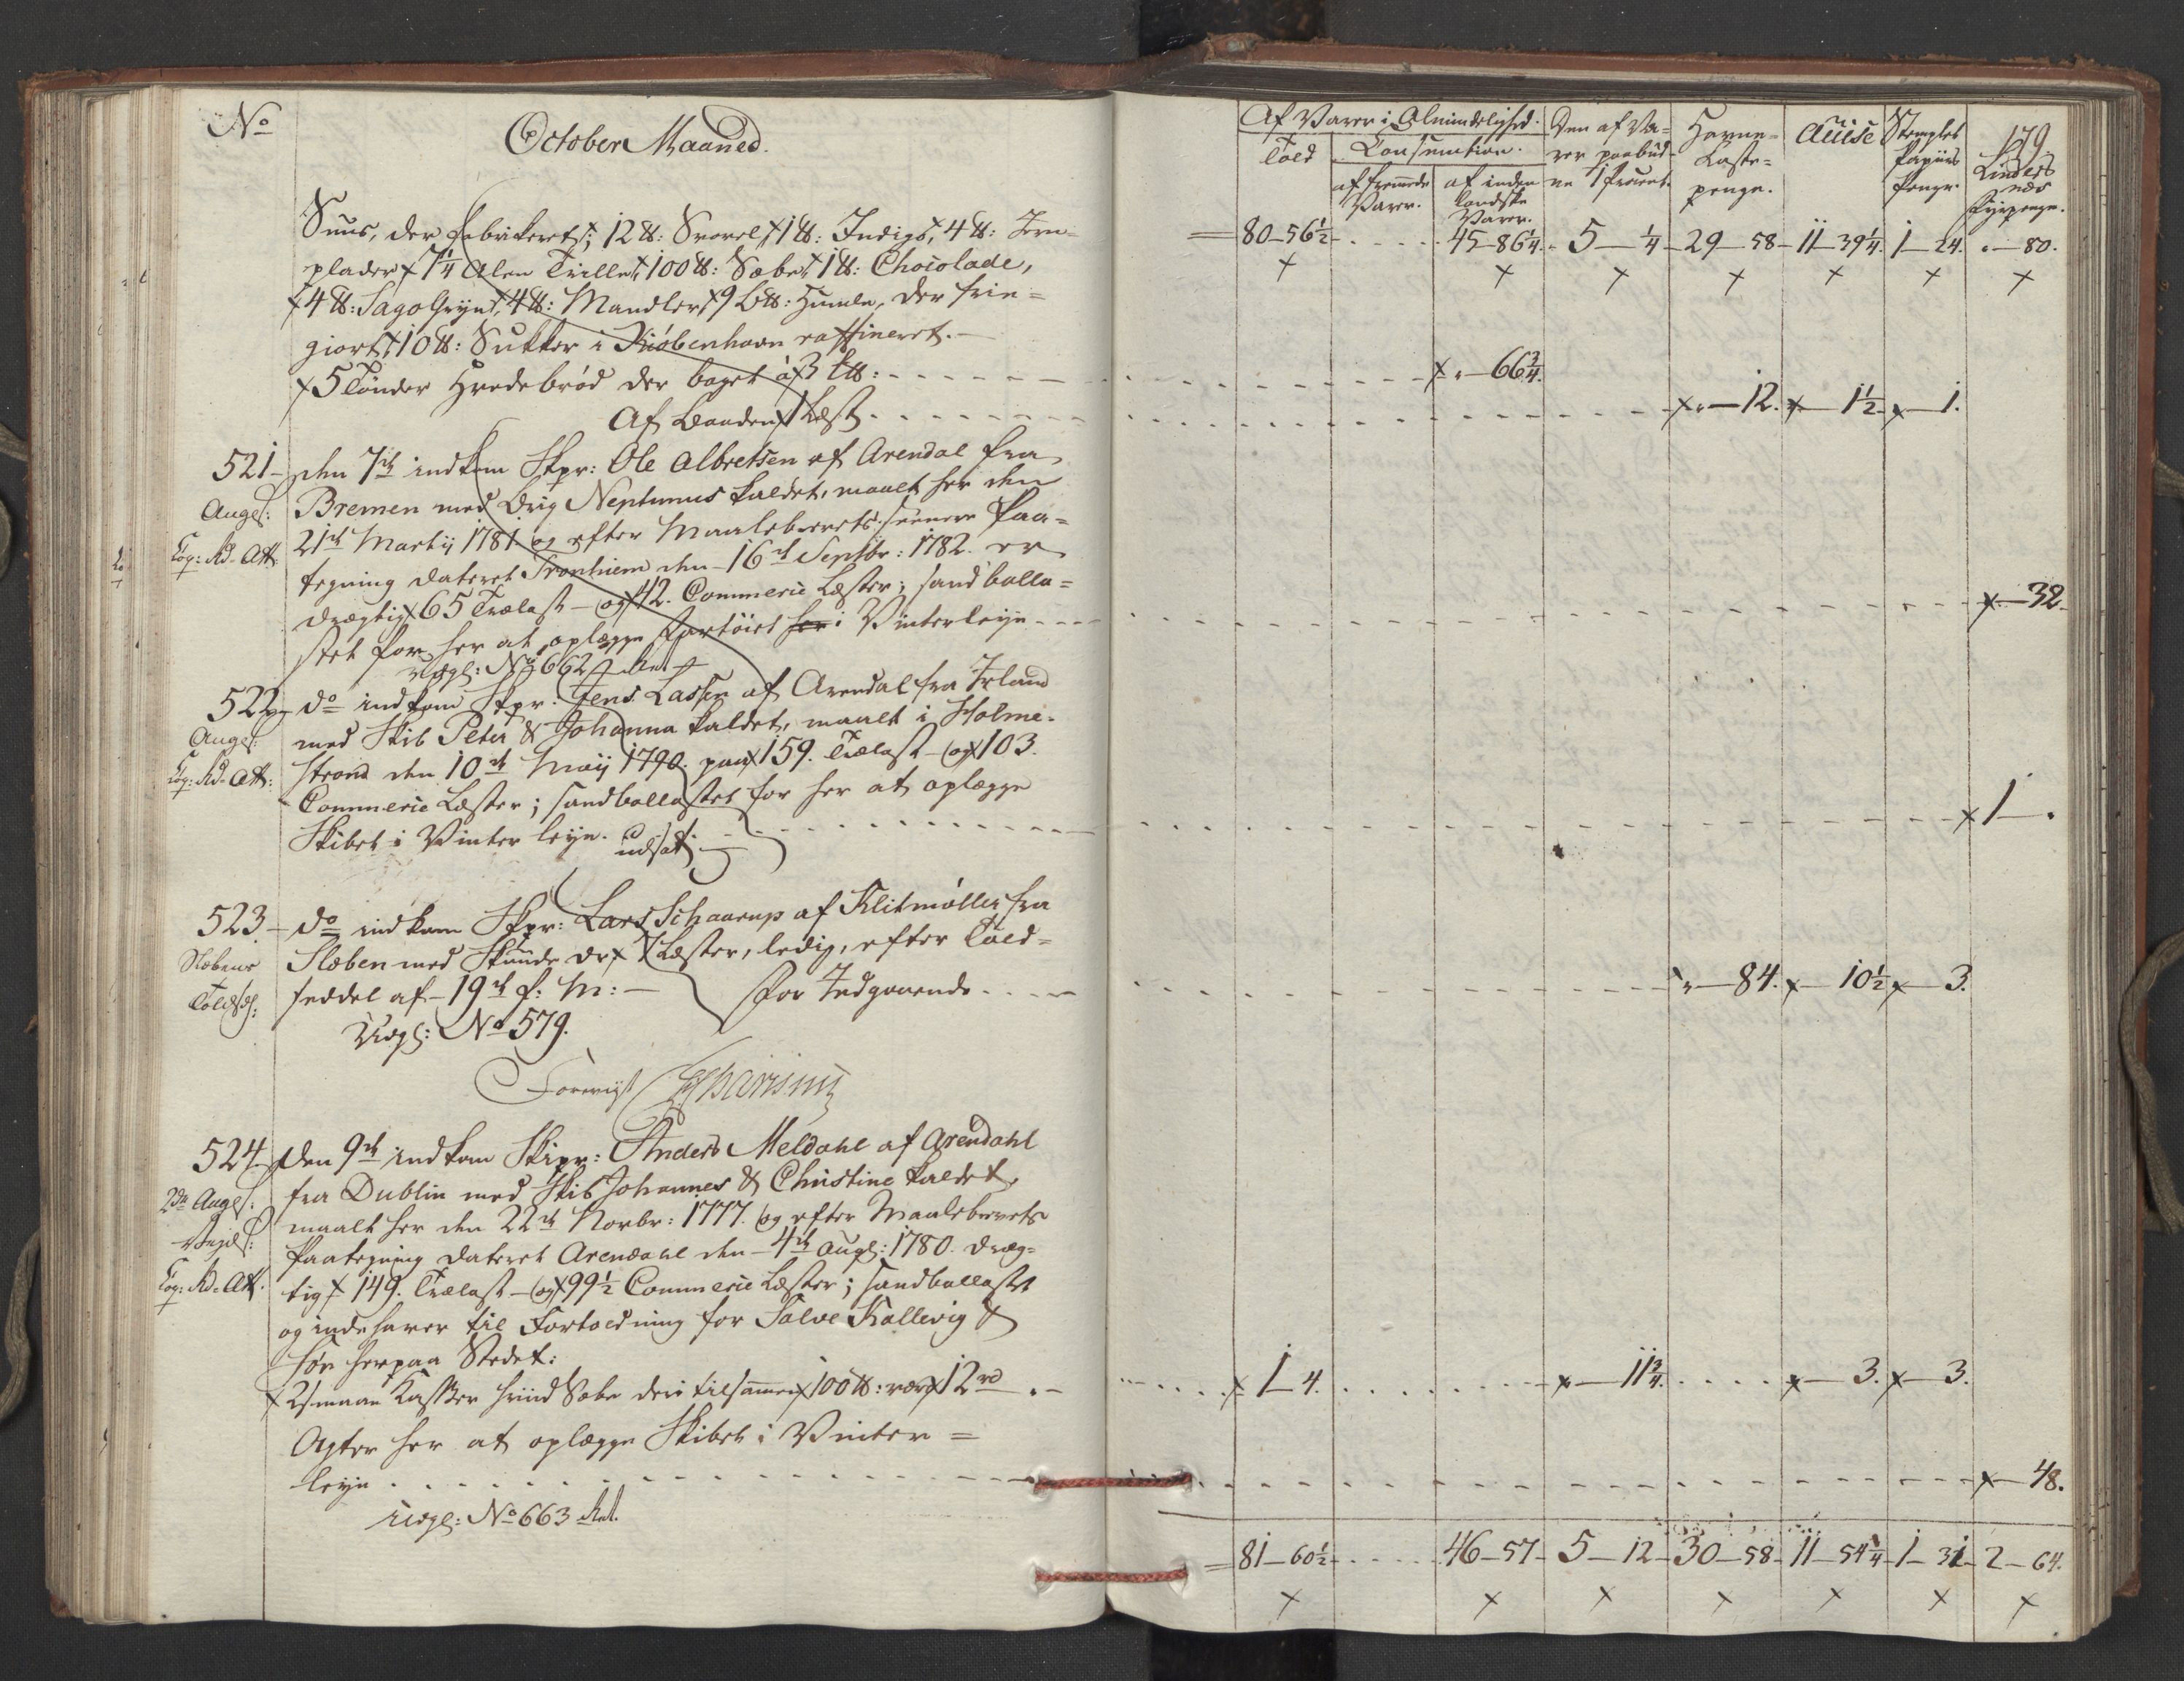 No
October Maaned.
Suus, der fabrikeret; 12 ℔: Svovel, 1 ℔: Indigo, 4 ℔: Jern-
plader, 7 1/4 Alen Trille, 100 ℔: Sæbe, 1 ℔: Chocolade,
4 ℔: Sago Gryn, 4 ℔: Mandler, 9 L℔: Humle, der frie-
giort, 10 ℔: Sukker i Kiøbenhavn raffineret.
5 Tønder Hvedebrød der baget af 3 t℔:
Af Baaden 1 Læst
521 - den 7de indkom Skpr: Ole Albretsen af Arendal fra
Bremen med Brig Neptunus kaldet, maalt her den
21de Martij 1781. og efter Maalebrevets senere Paa=
tegning dateret Tronhiem den 16de Septbr: 1782. er
drægtig 65 Trælast - og 42. Commerce Læster; sandballa=
stet for her at oplægge Fartøiet her i Vinterleije
Udgl: No 662
Angl:
Toj: Rd. Att:
522 - do indkom Skpr. Jens Lassen af Arendal fra Irland
med Skib Peter & Johanna kaldet, maalt i Holme-
strand den 10de Maij 1790. paa 159. Trælast - og 103.
Commerce Læster; sandballastet for her at oplægge
Skibet i Vinter leije. udsat.
Angl:
Toj: Rd. Att:
523 - do indkom Skpr: Lars Schaarup af Klitmøller fra
Slæben med Skuude dr. 7 Læster, ledig, efter Told=
seddel af 19de f: M: - For Indgaaende
Udgl: No 579.
Slæbens
Toldsdl:
Forevist
524 - Den 9de indkom Skipr: Anders Meldahl af Arendahl
fra Dublin med Skib Johannes & Christine kaldet,
maalt her den 22de Novbr: 1777. og efter Maalebrevets
Paategning dateret Arendahl den 4de Augl: 1780. dræg=
tig 149. Trælast - og 99 1/2 Commerce Læster; sandballastet
og indehaver til Fortoldning for Salve Kallevig &
Søn herpaa Stedet:
2 smaae Kasser hviid Sæbe deri tilsammen 100 ℔: værd 12 rd
Agter her at oplægge Skibet i Vinter=
leije
Udgl: No 663
2de Angl:
Toj: Rd. Att:
Af Varer i Almindelighed.
Told
Consumtion.
af fremmede Varer.
af inden landske Varer.
Den af Va=
rer paabud=
ne 1 Procent.
Havne=
Laste=
penge.
Accise
Stemplet
Papiirs
Penge.
179.
Lindes
næs
Fyrpenge.
80-56 1/2 45-86 1/4 5- 1/4 29-58 11-39 1/4 1-24. -80.
- 66 3/4.
- 12. - 1 1/2 - 1.
- 32.
1 -
- 84. - 10 1/2 - 3.
1-4. - 11 3/4. - 3. - 3.
- 48.
81-60 1/2 46-57 5-12 30-58 11-54 1/4 1-31 2-64.